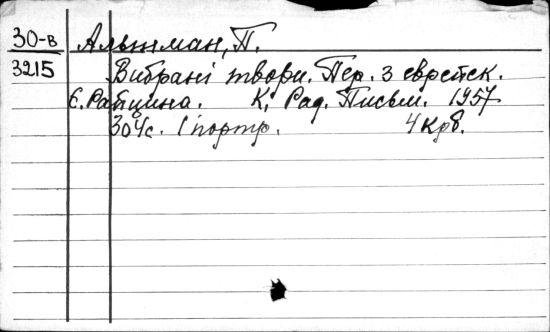 30-в Альтман, П.
3215 Вибрані твори. Пер. з еврейск.
Є. Райцина. К, Рад. Письм. 1957
304с. 1 портр. 4 крб.